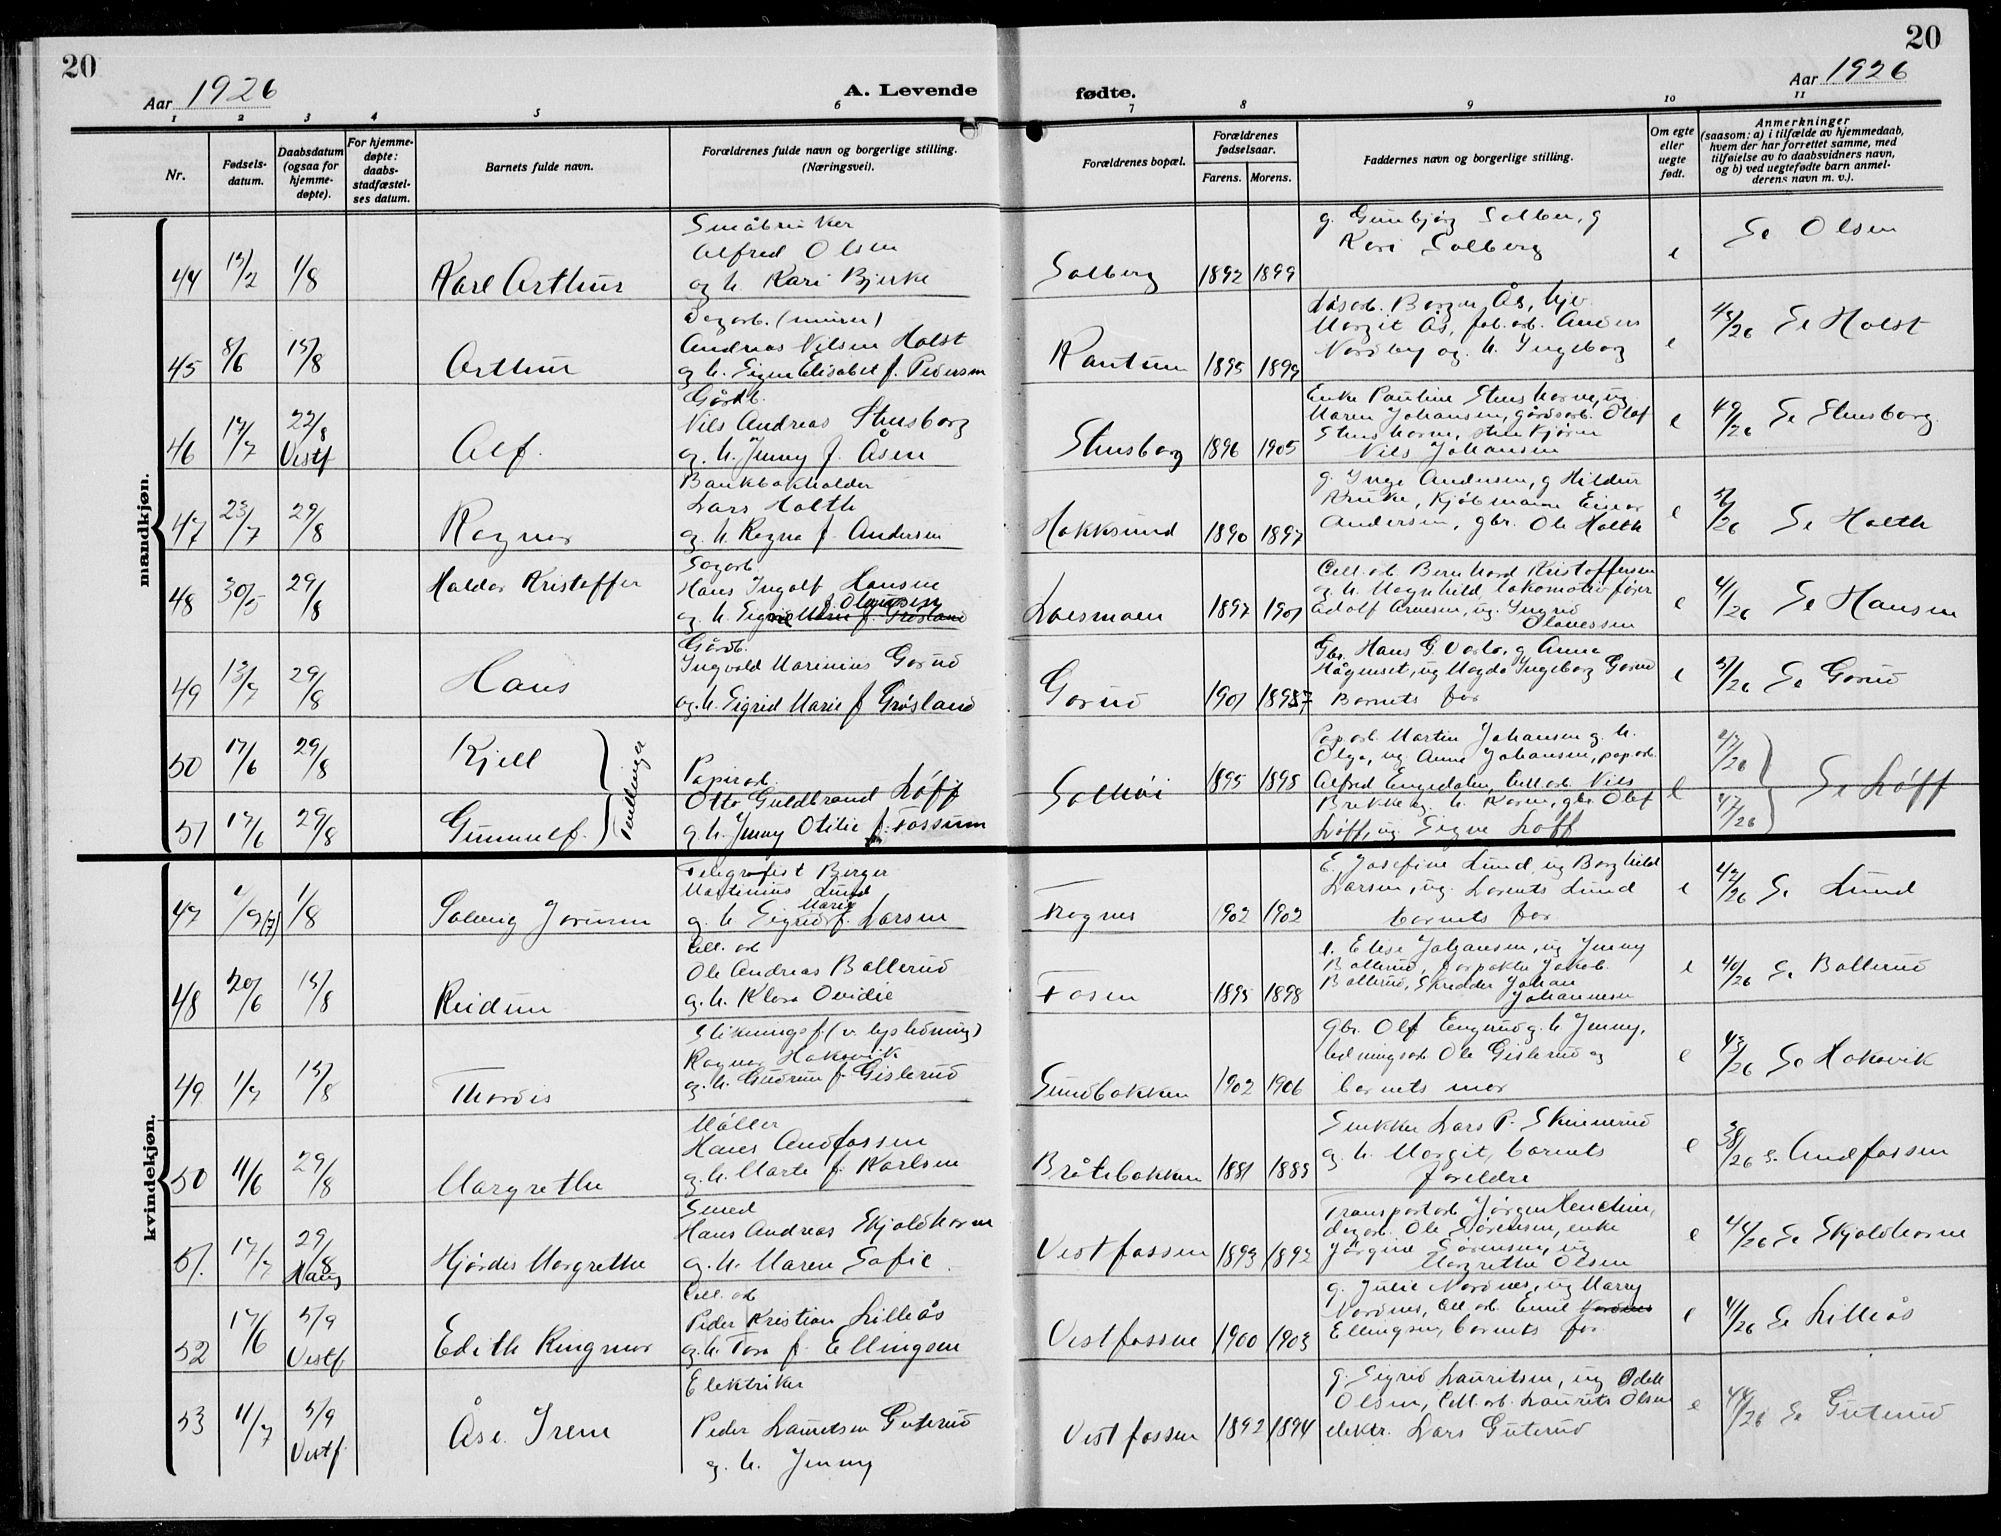 20
Aar 1926
A. Levende
fødte.
Aar 1926
20
1 2 3 4 5 6 7 8 9 10 11
Nr.
Fødsels-
datum.
Daabsdatum
(ogsaa for
hjemme-
døpte).
For hjemme-
døpte:
daabs-
stadfæstel-
ses datum.
Barnets fulde navn.
Forældrenes fulde navn og borgerlige stilling.
(Næringsvei).
Forældrenes bopæl.
Forældrenes
fødselsaar.
Farens. Morens.
Faddernes navn og borgerlige stilling.
Om egte
eller
uegte
født.
Anmerkninger
(saasom: a) i tilfælde av hjemmedaab,
hvem der har forrettet samme, med
tilføielse av to daabsvidners navn,
og b) ved uegtefødte barn anmel-
derens navn m. v.).
mandkjøn.
44 13/2 1/8 Karl Arthur
Småbruker
Alfred Olsen
og h. Kari Bjerke
Solberg 1892 1899
g. Gunbjørg Solberg, g
Kari Solberg
e
Se Olsen
45 8/6 15/8 Arthur
Dagarb. (murer)
Andreas Nilsen Holst
og h. Signe Elisabet f. Pedersen
1895 1899
løsarb. Borger Ås, hjv.
Margit Ås, fab.arb. Anders
Nordby og h. Ingeborg
e
43/26 Se Holst
46 14/7 22/8
Vestf
Alf.
Gårdb.
Nils Andreas Stensborg
og h. Jenny f. Åsen
Stensborg 1896 1905
Enke Pauline Stenshorne, ug
Maren Johansen, gårdsarb. Olaf
Stenshorne,
Nils Johansen
e
49/26 Se Stensborg.
47 23/7 29/8 Ragnar
Bankbokholder
Lars Holth
og h. Ragna f. Andersen
Hokksund 1890 1897
g. Inga Andersen, g Hildur
Kjøbmann Einar
Andersen, gbr. Ole Holth
e
56/26 Se Holth
48 30/5 29/8 Haldor Kristoffer
Sagarb.
Hans Ingolf Hansen
f. Olaussen
og h. Signe Marie f. Grøsland
Loesmoen 1897 1901
Cell. arb Bernhard Kristoffersen
og h. Magnhild, lokomotivfører
Adolf Arnesen, ug. Ingrid
Olavessen
e
41/26 Se Hansen
49 13/7 29/8 Hans
Gårdb.
Ingvald Marinius Gorud
og h. Sigrid Marie f Grøsland
Gorud 1901 18987
Gbr. Hans G. Varlo, g Anna
Hågenset, ug Magda Ingeborg Gorud
Barnets far
e
57/26 Se Gorud
50 17/6 29/8 Kjell
51 17/6 29/8 Gunnulf.
Tvillinger
Papirarb.
Otto Guldbrand Løff
og h. Jenny Otilie f. Fossum
1895 1898
Pap.arb. Martin Johansen og h.
Olga, ug Anna Johansen, pap.arb.
Alfred Engedalen, Cell.arb. Nils
Brekke og h. Karen, gbr. Olaf
Løff, ug Signe Løff
e
47/26
47/26
Se Løff
kvindekjøn.
47 1/8 Solveig Jorunn
Telegrafist Birger
Martinius Lund
Marie
og h. Sigrid f. Larsen
Kognes 1902 1902
E. Josefine Lund, ug Borghild
Larsen, ug. Lorents Lund
barnets far
e
42/26 Se Lund
48 20/6 15/8 Reidun
Cell. arb
Ole Andreas Bollerud
og h. Klara Ovidie
Fosen 1895 1898
e. Elise Johansen, ug Jenny
Bollerud, forpakter Jakob
Bollerud, Skredder Johan
Johannesen
e
40/26 Se Bollerud
49 1/7 15/8 Thordis
Stikningsf. (v. lysledning)
Ragnar Hokovik
og h. Gudrun f. Gislerud
Sundbakken 1902 1906
Gbr. Olf Engerud og h Jenny,
ledningsarb Ole Gislerud og
barnets mor
e
43/26 Se Hokovik
50 11/6 29/8 Margrethe
Møller
Hans Andfossen
og h. Marte f. Karlsen
Bråtebakken 1881 1888
Snekker Lars P. Skinnerud
og h. Margit, barnets
foreldre
e
38/26 Se. Andfossen
51. 17/7 29/8
Haug
Hjørdis Margrethe
Smed
Hans Andreas Skjoldhorne
og h. Maren Sofie
Vestfossen 1893 1892
Transportarb Jørgen
dagarb. Ole Sørensen, enke
Jørgine Sørensen, ug
Margrethe Olsen
e
44/26 Se Skjoldhorne
52 17/6 5/9
Vestf
Edith Ringmor
Cell. arb
Peder Kristian Lilleås
og h. Tora f. Ellingsen
Vestfossen 1900 1903
g. Julie Nordnes, ug Marry
Nordnes, Cell. arb. Emil Nordnes
Ellingsen, barnets far
e
41/26 Se Lilleås
53 11/7 5/9
Vestf.
Åse Irene
Elektriker
Peder Lauritsen Guterud
og h. Jenny
Vestfossen 1892 1894
g. Sigrid Lauritsen, ug Odell
Olsen, Cell. arb. Laurits Olsen
elektr. Lars Guterud
e
44/26 Se Guterud